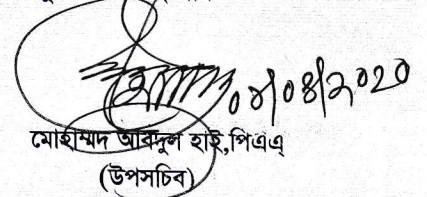 ০৮/০৪/২০২০
মোহাম্মদ আবদুল হাই,পিএএ
(উপসচিব)